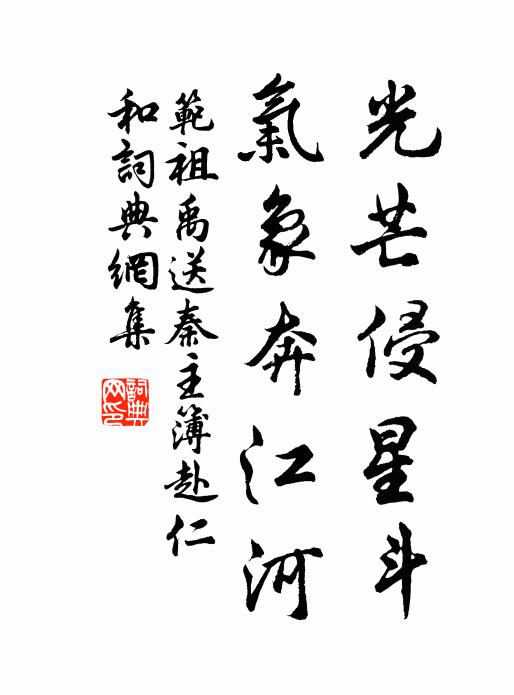 光芒侵星斗
氣象奔江河
範祖禹送秦主簿赴仁
和詞典網集
詞典
网印